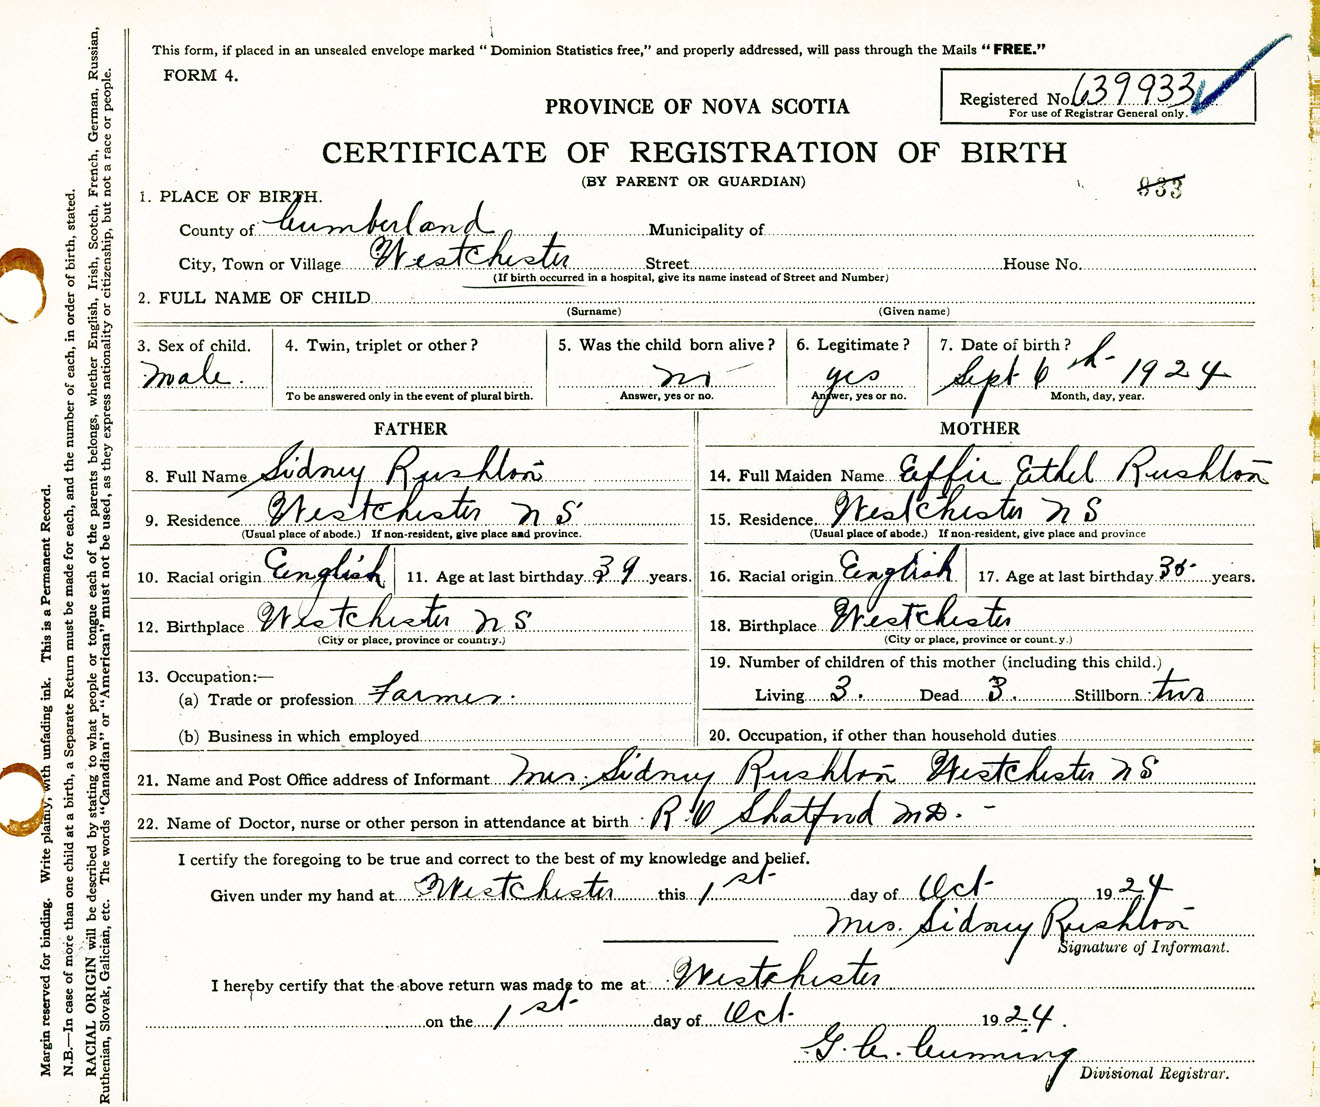 This form, if placed in an unsealed envelope marked "Dominion Statistics free," and properly addressed, will pass through the Mails "FREE."
FORM 4.
Registered No. 639933
For use of Registrar General only.
PROVINCE OF NOVA SCOTIA
CERTIFICATE OF REGISTRATION OF BIRTH
(BY PARENT OR GUARDIAN)
933
1. PLACE OF BIRTH.
County of Cumberland Municipality of
City, Town or Village Westchester Street House No.
(If birth occurred in a hospital, give its name instead of Street and Number)
2. FULL NAME OF CHILD
(Surname) (Given name)
3. Sex of child. 4. Twin, triplet or other? 5. Was the child born alive? 6. Legitimate? 7. Date of birth?
male. no yes Sept 6th 1924
To be answered only in the event of plural birth. Answer, yes or no. Answer, yes or no. Month, day, year.
FATHER MOTHER
8. Full Name Sidney Rushton 14. Full Maiden Name Effie Ethel Rushton
9. Residence Westchester N S 15. Residence. Westchester N S
(Usual place of abode.) If non-resident, give place and province. (Usual place of abode.) If non-resident, give place and province
10. Racial origin English 11. Age at last birthday 39 years. 16. Racial origin English 17. Age at last birthday 35 years.
12. Birthplace Westchester N S 18. Birthplace Westchester
(City or place, province or country.) (City or place, province or country.)
13. Occupation:— 19. Number of children of this mother (including this child.)
(a) Trade or profession Farmer. Living 3. Dead 3. Stillborn two
(b) Business in which employed 20. Occupation, if other than household duties
21. Name and Post Office address of Informant Mrs. Sidney Rushton Westchester N S
22. Name of Doctor, nurse or other person in attendance at birth R. Shatford M.D. -
I certify the foregoing to be true and correct to the best of my knowledge and belief.
Given under my hand at Westchester this 1st day of Oct 1924
Mrs. Sidney Rushton
Signature of Informant.
I hereby certify that the above return was made to me at Westchester
on the 1st day of Oct. 1924.
G. C. Cumming
Divisional Registrar.
Margin reserved for binding. Write plainly, with unfading ink. This is a Permanent Record.
N.B.—In case of more than one child at a birth, a Separate Return must be made for each, and the number of each, in order of birth, stated.
RACIAL ORIGIN will be described by stating to what people or tongue each of the parents belongs, whether English, Irish, Scotch, French, German, Russian,
Ruthenian, Slovak, Galician, etc. The words "Canadian" or "American" must not be used, as they express nationality or citizenship, but not a race or people.